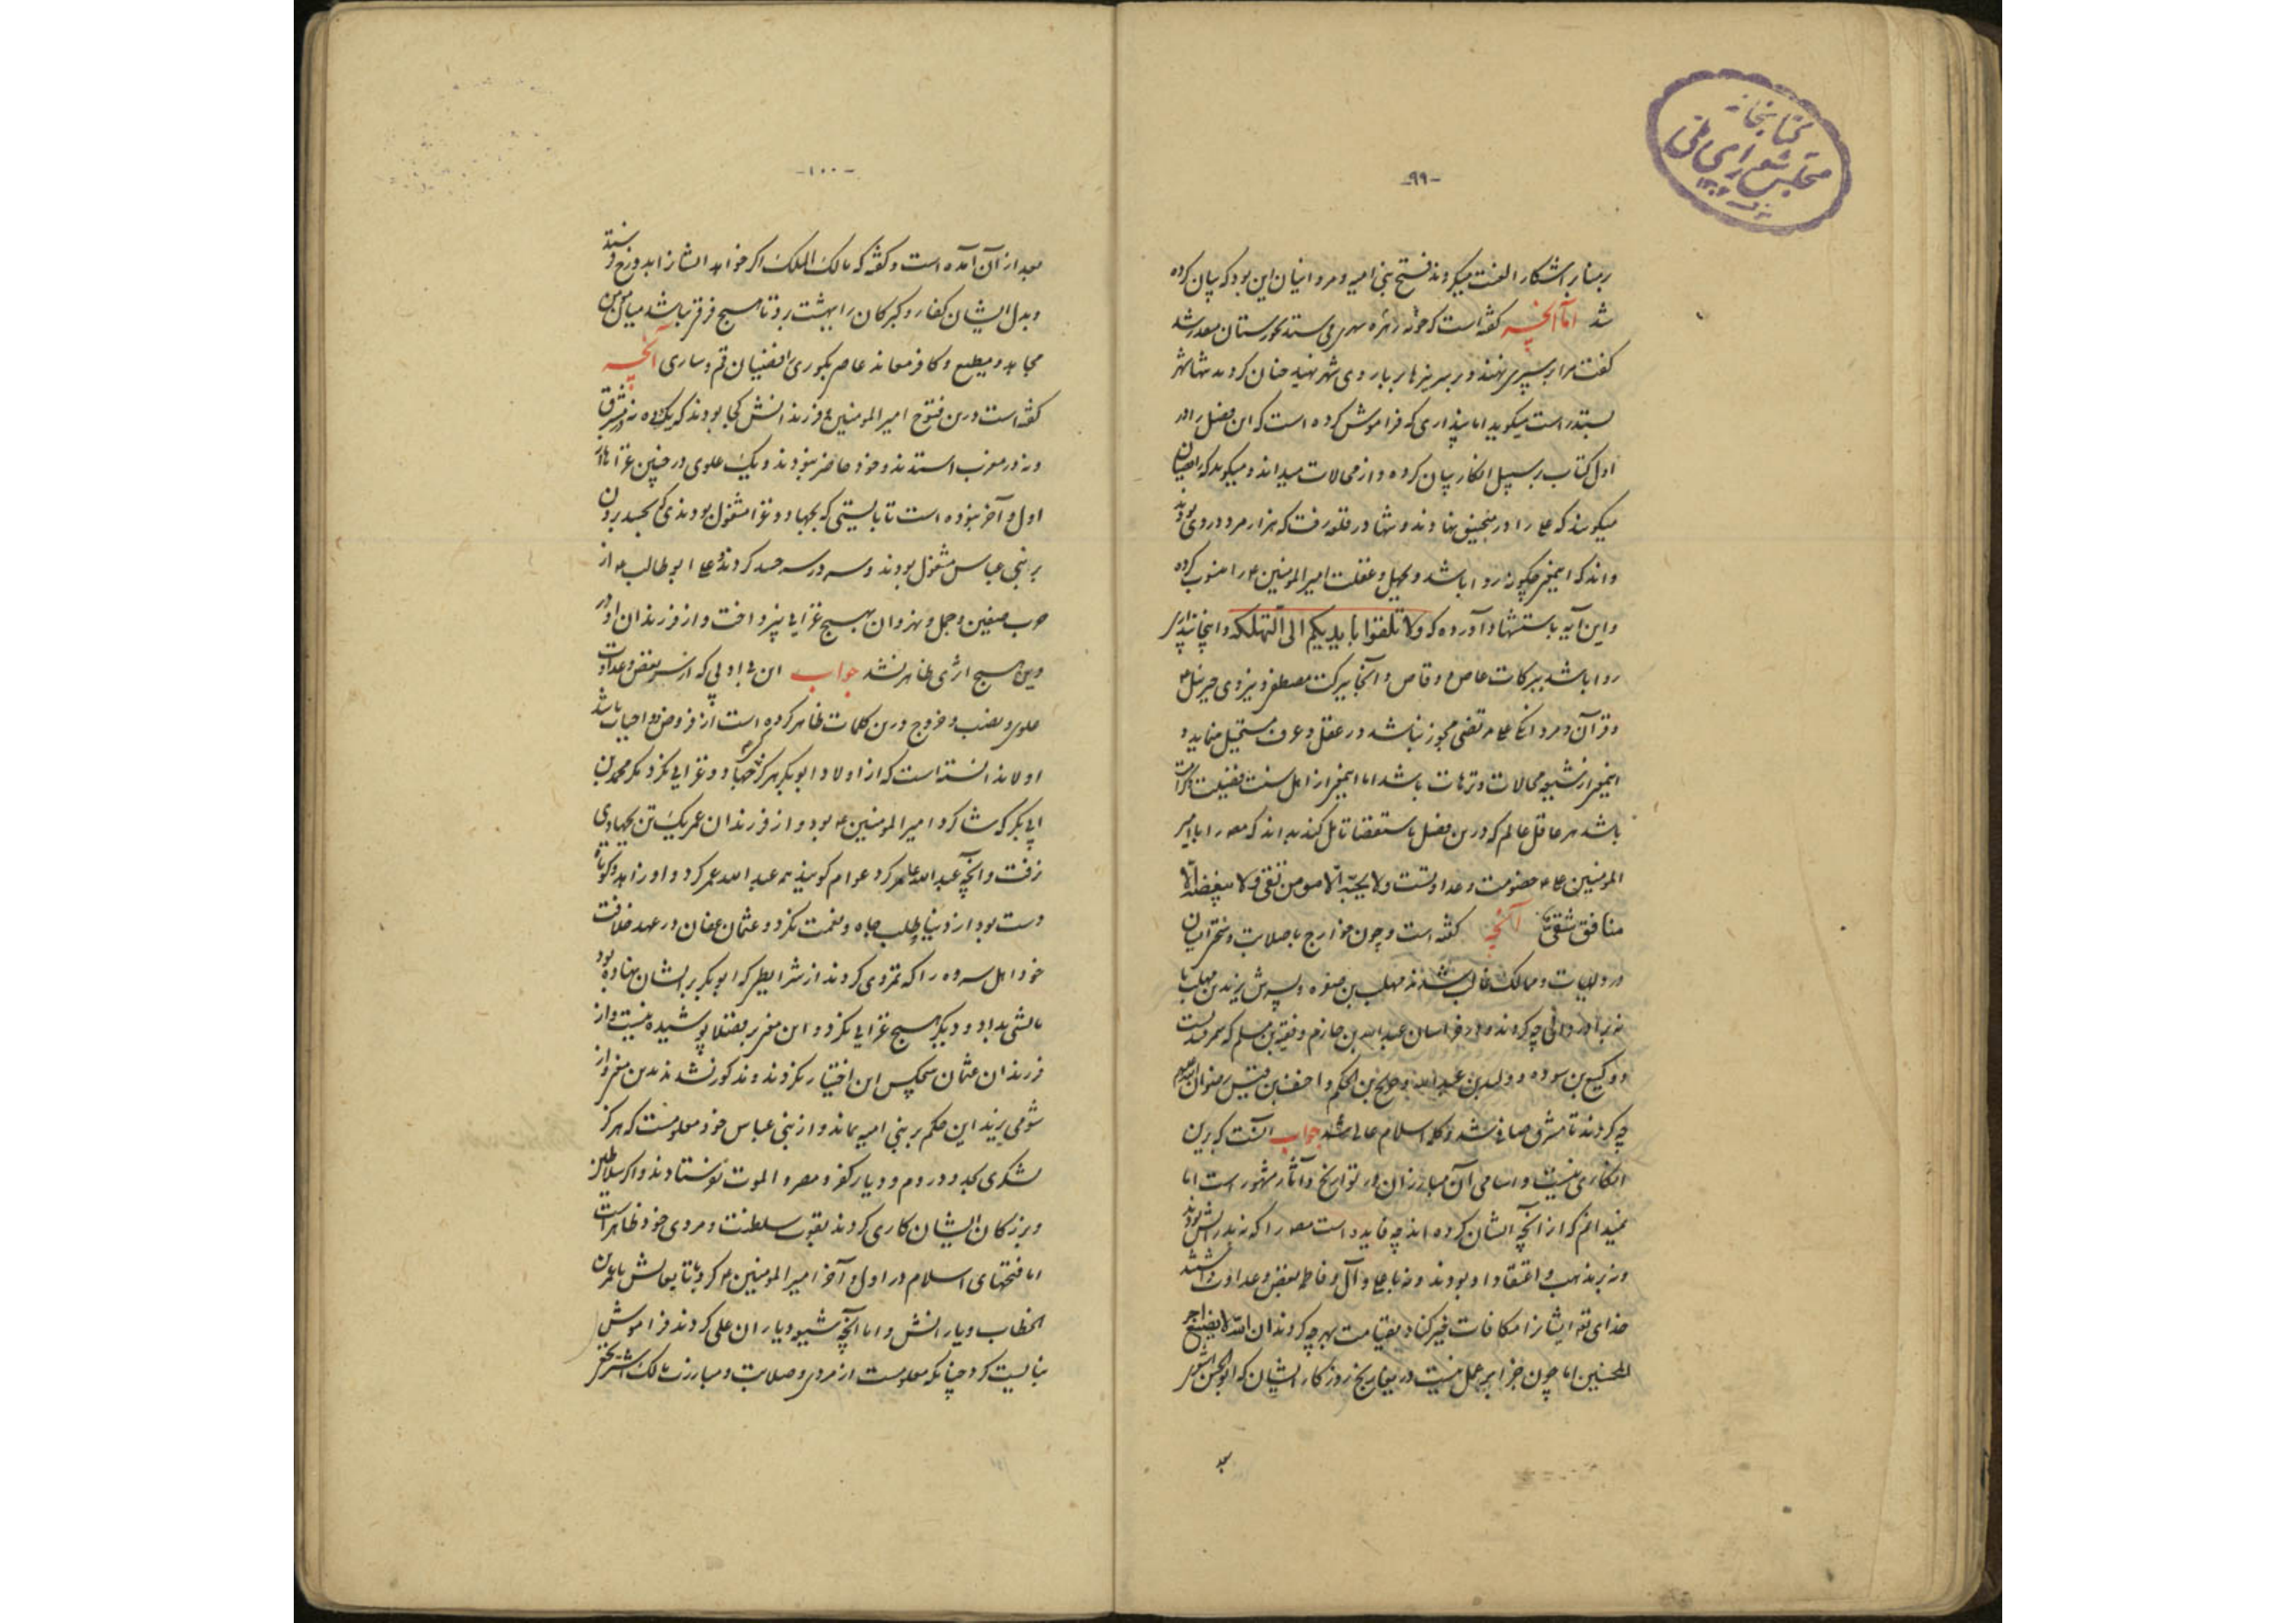 کتابخانه
مجلس شورای ملی
-۹۹-
بر منابر آشکارا لعنت میکردند فتح بنی امیه و مروانیان این بود که بیان کرده
شد اما آنچه گفته است که چون زهره میستد بخوزستان
گفت مرا بر سپری نهند و بر سر نیزها بر باروی شهر نهید چنان کردند تنها شهر
بستد راست میگوید اما پنداری که فراموش کرده است که این فصل را در
اول کتاب بر سبیل انکار بیان کرده و از محالات میداند و میگوید که رافضیان
میگویند که علی را در منجنیق نهادند و تنها در قلعه رفت که هزار مرد در وی بودند
و اند که اینخبر چگونه روا باشد و بجهل و غفلت امیر المومنین ع را منسوب کرده
و این آیه باستشهاد آورده که ولا تلقوا بایدیکم الی التهلکه و اینجا پنداری
روا باشد ببرکات عاص و وقاص و آنجا ببرکت مصطفی و نیروی جبرئیل ع
و قرآن و مردانگی علی مرتضی مجوز نباشد در عقل و عرف مستحیل نماید و
اینخبر از شیعه محالات و ترهات باشد اما اینخبر از اهل سنت فضیلت و کرامات
باشد هر عاقل عالم که درین فصل باستقصا تامل کند بداند که مصنف را با امیر
المومنین علی ع خصومت و عداوتست ولا یحبه الا مومن تقی ولا یبغضه الا
منافق شقی آنچه گفته است و چون خوارج با صلابت و
در ولایات و ممالک غالب شدند مهلب بن صفره و پسرش یزید بن مهلب با
نه برادر دانی چه کردند و در خراسان عبدالله بن حازم و قتیبة بن مسلم که سمرقند بست
و وکیع بن سوده و ولید بن عبدالله و صالح بن الحکم و احنف بن قیس رضوان الله علیهم
چه کردند تا مشرق صافی شد و کلمه اسلام عالی شد جواب آنست که برین
انکاری نیست و اسامی آن مبارزان در تواریخ و آثار مشهور است اما
نمیدانم که از آنچه ایشان کرده اند چه فایده است مصنف را که نه پدرانش بودند
و نه بر مذهب و اعتقاد او بودند و نه با علی و آل و فاطمه بغض و عداوت داشتند
خدای تع ایشانرا مکافات خیر کناد بقیامت بهر چه کردند ان الله لا یضیع اجر
المحسنین اما چون جزا بر عمل نیست در تاریخ روزگار ایشان که ابوالحسن اشعری
بعد
-۱۰۰-
بعد از آن آمده است و گفته که مالک الملک اگر خواهد ایشانرا بدوزخ فرستد
و بدل ایشان کفار و گبرکان را ببهشت برد تا هیچ فرق نباشد میان مومن
مجاهد و مطیع و کافر معاند عاصی بکوری رافضیان قم و ساری آنچه
گفته است درین فتوح امیر المومنین ع و فرزندانش کجا بودند که یک ده نه در مشرق
و نه در مغرب استدند و خود حاضر نبودند و یک علوی در چنین غزاها در
اول و آخر نبوده است تا بایستی که بجهاد و غزا مشغول بودندی که بحسد بردن
بر بنی عباس مشغول بودند و سه در سه حسد کردند و علی ابو طالب ع از
حرب صفین و جمل و نهروان بهیچ غزایی نپرداخت و از فرزندان او در
دین هیچ اثری ظاهر نشد جواب این بی ادبی که از سر بغض و عداوت
علوی و نصب و خروج درین کلمات ظاهر کرده است از فروض و واجبات باشد
اولا ندانسته است که از اولاد ابو بکر هرگز جهاد و غزایی نکرد مگر محمد بن
ابی بکر که شاگرد امیر المومنین ع بود و از فرزندان عمر یک تن بجهادی
نرفت و آنچه عبدالله عامر کرد عوام گویند که عبدالله عمر کرد و او زاهد و کوتاه
دست بود از دنیا طلب جاه و نعمت نکرد و عثمان عفان در عهد خلافت
خود اهل رده را که تمردی کردند از شرایطی که ابو بکر بر ایشان نهاده بود
مالشی بداد و دیگر هیچ غزایی نکرد و این معنی بر فضلا پوشیده نیست و از
فرزندان عثمان هیچکس این اختیار نکردند و مذکور نشدند بدین معنی و از
شومی یزید این حکم بر بنی امیه بماند و از بنی عباس خود معلومست که هرگز
لشکری بحدود روم و دیار کفر و مصر و الموت نفرستادند و اگر سلاطین
و بزرگان ایشان کاری کردند بقوت سلطنت و مردی خود ظاهر است
اما فتحهای اسلام در اول و آخر امیر المومنین ع کرد با تابعانش یا عمر بن
الخطاب و یارانش و اما آنچه شیعه و یاران علی کردند فراموش
نبایست کرد چنانکه معلومست از مردی و صلابت و مبارزت مالک اشتر نخعی